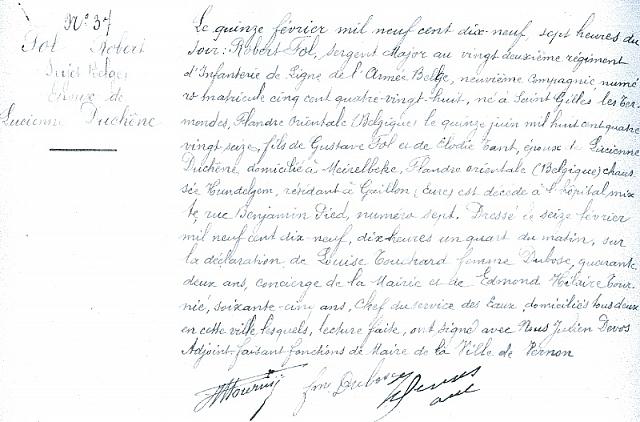 N° 37
Fol Robert
Sujet Belge
Epoux de
Lucienne Duchêne
Le quinze février mil neuf cent dix-neuf, sept heures du
soir: Robert Fol, sergent Major au vingt deuxième régiment
d'Infanterie de Ligne de l'Armée Belge, neuvième compagnie, numé
ro matricule cinq cent quatre-vingt-huit, né à Saint Gilles les Ter
mondes, Flandre Orientale (Belgique) le quinze juin mil huit cent quatre
vingt seize, fils de Gustave Fol et de Elodie Cant, époux de Lucienne
Duchêne, domicilié à Meirelbeke, Flandre orientale (Belgique) chaus
sée Hundelgem, résidant à Gaillon, (Eure) est décédé à l'hôpital mix
te, rue Benjamin Pied, numéro sept. Dressé le seize février
mil neuf cent dix-neuf, dix heures un quart du matin, sur
la déclaration de Louise Touchard femme Dubosc, quarante
deux ans, concierge de la Mairie et de Edmond Hilaire Tour
nié, soixante-cinq ans, Chef du service des Eaux, domiciliés tous deux
en cette ville lesquels, lecture faite, ont signé avec Nous Julien Devos
Adjoint-faisant fonctions de Maire de la Ville de Vernon
fme Dubosc